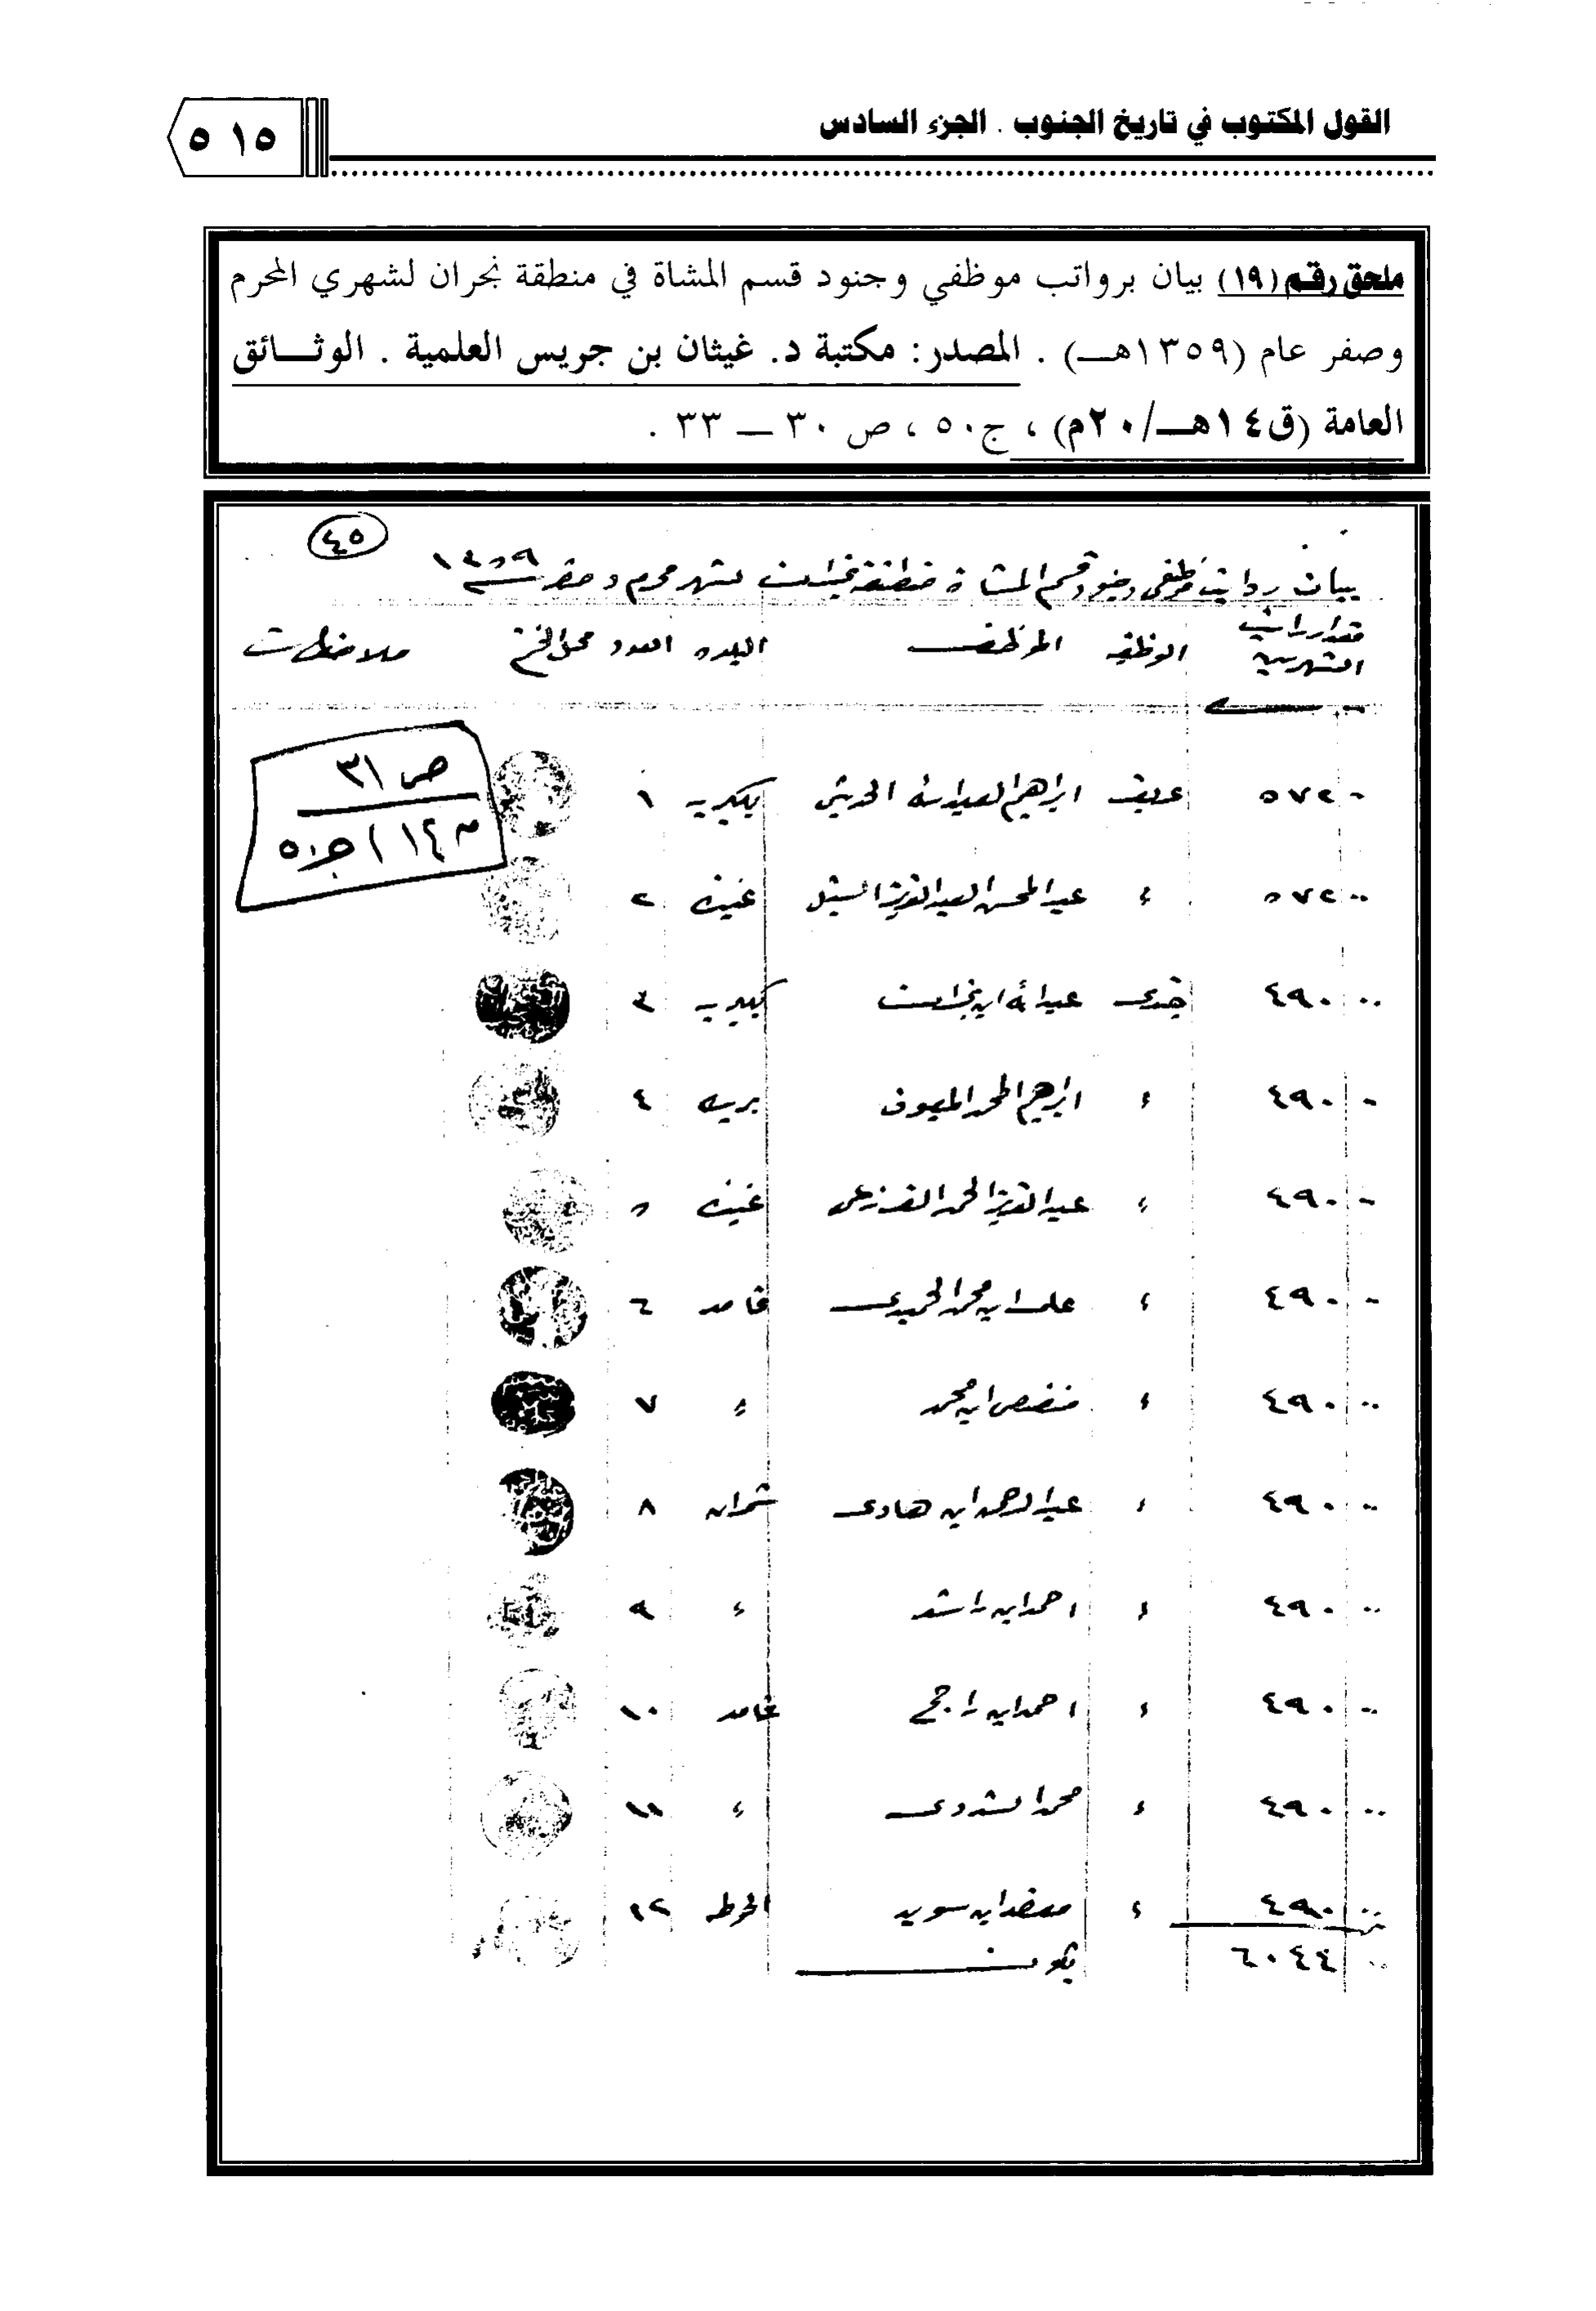 القول المكتوب في تاريخ الجنوب . الجزء السادس
٥١٥
ملحق رقم (١٩) بيان برواتب موظفي وجنود قسم المشاة في منطقة نجران لشهري المحرم
وصفر عام (١٣٥٩هـ) . المصدر: مكتبة د. غيثان بن جريس العلمية . الوثائق
العامة (ق١٤هـ/٢٠م) ، ج٥٠ ، ص ٣٠ – ٣٣ .
٤٥
بيان رواتب موظفي وجنود قسم المشاة منطقة نجران لشهر محرم وصفر ١٣٥٩
مقدار راتب الشهرين الوظيفه الموظف البلده العدد محل الختم ملاحظات
ص ٣١
ج٥٠
٥٧٢ عريف ابراهيم العبدالله الحربي بكيريه ١
٥٧٢ ء عبدالمحسن العبدالعزيز عنيزه ٢
٤٩٠ جندي عبدالله ابن نجران بكيريه ٣
٤٩٠ ء ابراهيم المحمد بريده ٤
٤٩٠ ء عبدالعزيز المحمد عنيزه ٥
٤٩٠ ء علي ابن محمد الحميدي غامد ٦
٤٩٠ ء ابن محمد ء ٧
٤٩٠ ء عبدالرحمن ابن هادي شمران ٨
٤٩٠ ء احمد ابن راشد ء ٩
٤٩٠ ء احمد ابن راجح غامد ١٠
٤٩٠ ء محمد الشدوي ء ١١
٤٩٠ ء ابن سويد الحوطه ١٢
٦٠٤٤ يكون